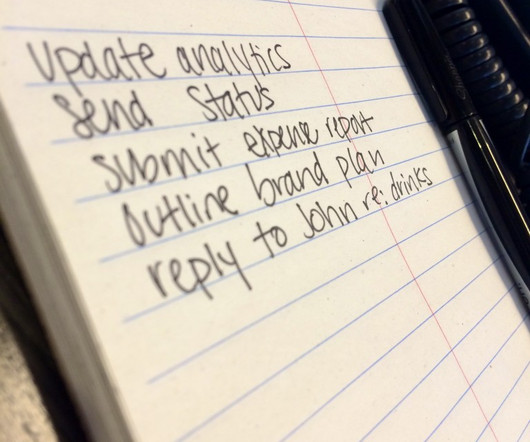 update analytics
Send Status
submit expense report
Outline brand plan
reply to John re: drinks